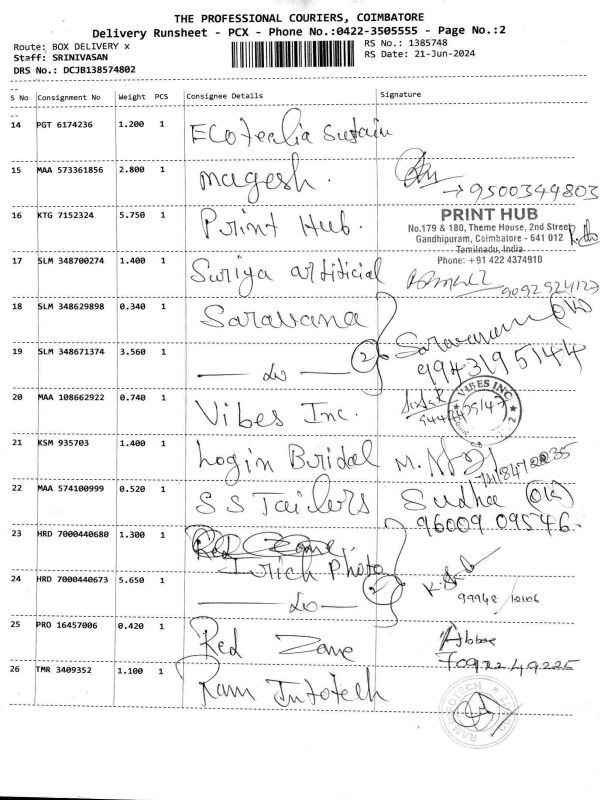 THE PROFESSIONAL COURIERS, COIMBATORE
Delivery Runsheet - PCX - Phone No.:0422-3505555 - Page No.:2
Route: BOX DELIVERY x
RS No.: 1385748
Staff: SRINIVASAN
RS Date: 21-Jun-2024
DRS No.: DCJB138574802
S No Consignment No Weight PCS Consignee Details Signature
14 PGT 6174236 1.200 1 Ecoteclia Sustain
15 MAA 573361856 2.800 1 magesh.
→ 9500344803
16 KTG 7152324 5.750 1 Print Hub.
PRINT HUB
No.179 & 180, Theme House, 2nd Street
Gandhipuram, Coimbatore - 641 012
Tamilnadu, India
Phone: +91 422 4374910
17 SLM 348700274 1.400 1 Suriya artificial
9092924127
18 SLM 348629898 0.340 1 Saravana
Saravanan (OK)
19 SLM 348671374 3.560 1 — do — 2
9943195144
20 MAA 108662922 0.740 1 Vibes Inc.
VIBES INC
21 KSM 935703 1.400 1 Login Bridal M.
22 MAA 574100999 0.520 1 S S Tailers Sudha (OK)
96009 09546.
23 HRD 7000440680 1.300 1 Red Zone
Irich Photo
24 HRD 7000440673 5.650 1 — do — 2
99948 10106
25 PRO 16457006 0.420 1 Red Zone Abbas
7092249225
26 TMR 3409352 1.100 1 Ram Infotech